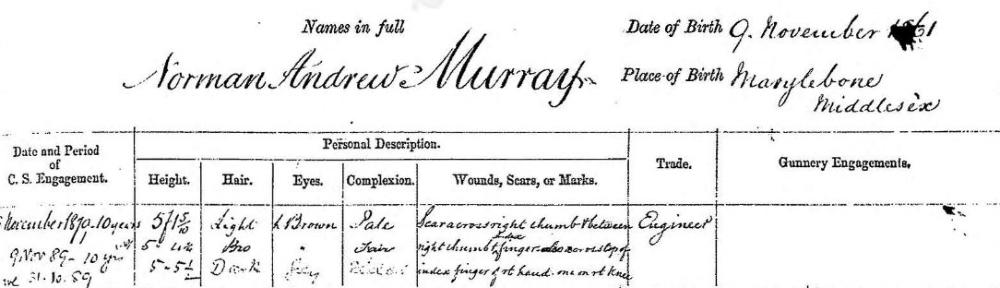 Names in full
Date of Birth 9. November 1861
Norman Andrew Murray
Place of Birth Marylebone
Middlesex
Date and Period
of
C. S. Engagement.
Personal Description.
Height. Hair. Eyes. Complexion. Wounds, Scars, or Marks.
Trade.
Gunnery Engagements.
November 1879-10 years 5f 1 5/10 Light L Brown Pale Scar across right thumb & between Engineer
9 Nov 89- 10 yrs 5 - Bro " Fair right thumb & finger also across top of
31.10.89 5 - 5 1/2 Dark Grey index finger of rt hand. one on rt knee